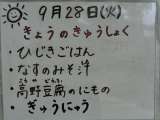 9月28日(火)
きょうのきゅうしょく
・ひじきごはん
・なすのみそ汁
・高野豆腐のにもの
・ぎゅうにゅう